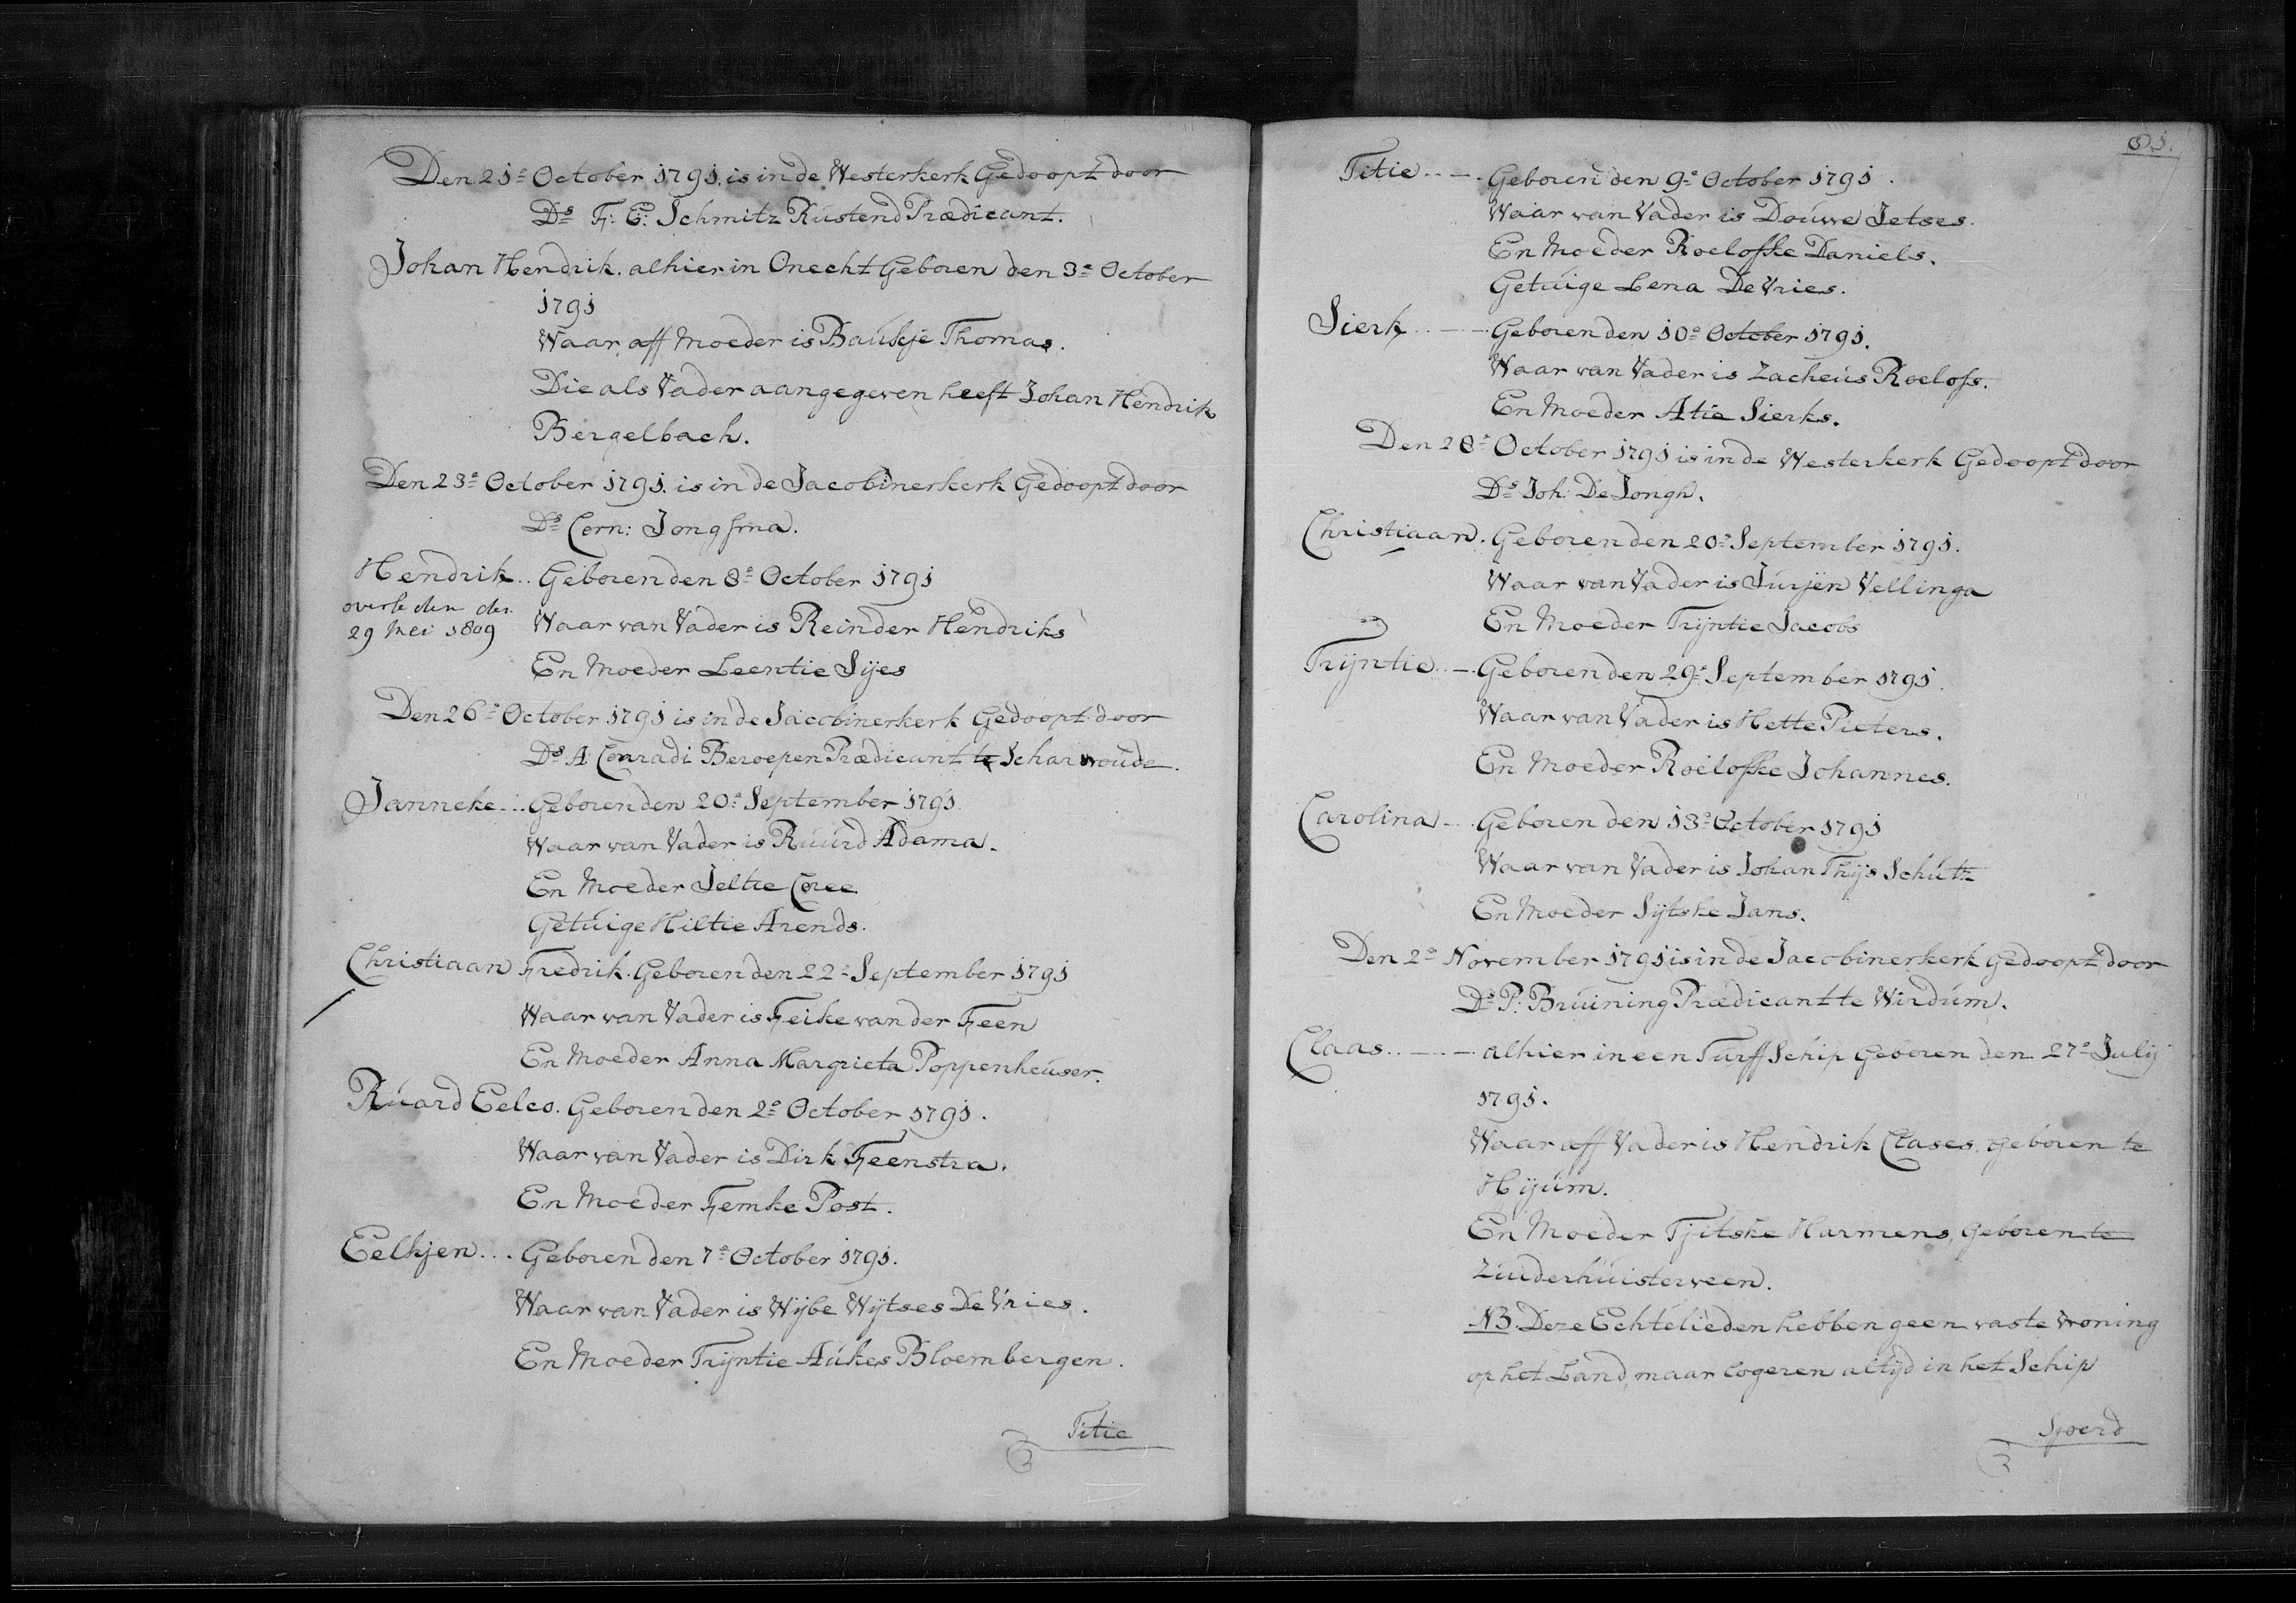 Den 21e October 1791. is in de Westerkerk Gedoopt door
Ds F: E: Schmitz Rustend Prædicant.
Johan Hendrik. alhier in Onecht Geboren den 3e October
1791
Waar aff Moeder is Baukje Thomas.
Die als Vader aangegeven heeft Johan Hendrik
Bergelbach.
Den 23e October 1791. is in de Jacobinerkerk Gedoopt door
Ds Corn: Jongsma.
Hendrik.. Geboren den 8e October 1791
overleden den
29 Mei 1809
Waar van Vader is Reinder Hendriks
En Moeder Leentie Sijes
Den 26e October 1791 is in de Jacobinerkerk Gedoopt door
Ds A: Conradi Beroepen Prædicant te Scharwoude.
Janneke... Geboren den 20e September 1791.
Waar van Vader is Ruurd Adama.
En Moeder Jeltie Coree
Getuige Hiltie Arends.
Christiaan Fredrik. Geboren den 22e September 1791
Waar van Vader is Feike van der Feen
En Moeder Anna Margrieta Poppenheuser.
Ruard Eelco. Geboren den 2e October 1791.
Waar van Vader is Dirk Feenstra.
En Moeder Femke Post.
Eelkjen... Geboren den 7e October 1791.
Waar van Vader is Wijbe Wijtses De Vries.
En Moeder Trijntie Aukes Bloembergen.
Titie
81.
Titie..-. Geboren den 9e October 1791.
Waar van Vader is Douwe Jetses.
En Moeder Roelofke Daniels.
Getuige Lena De Vries.
Sierk..-- Geboren den 10e October 1791.
Waar van Vader is Zacheus Roelofs.
En Moeder Atie Sierks.
Den 28e October 1791 is in de Westerkerk Gedoopt door
Ds Joh: De Jongh.
Christiaan. Geboren den 20e September 1791.
Waar van Vader is Jurjen Vellinga
En Moeder Trijntie Jacobs
Trijntie..-. Geboren den 29e September 1791.
Waar van Vader is Hette Pieters.
En Moeder Roelofke Johannes.
Carolina-.. Geboren den 13e October 1791
Waar van Vader is Johan Thijs Schutz
En Moeder Sijtske Jans.
Den 2e November 1791 is in de Jacobinerkerk Gedoopt door
Ds P: Bruining Prædicant te Wirdum.
Claas..-.- alhier in een Turff Schip Geboren den 27e Julij
1791.
Waar aff Vader is Hendrik Clases, geboren te
Hijum.
En Moeder Tjitske Harmens, geboren te
Zuiderhuisterveen.
NB. Deze Echtelieden hebben geen vaste woning
op het Land, maar logeren altijd in het Schip
Sjoerd